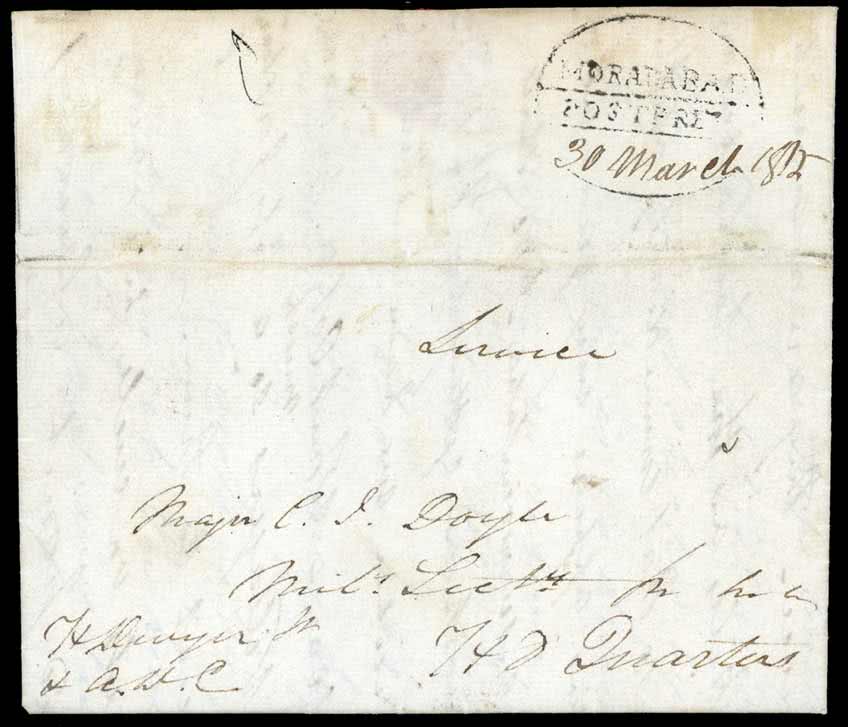 MORADABAD
POST PAID
30 March 1815
Service
Major C. J. Doyle
Mily. Secty.
Hd Quarters
H Dwyer
A.D.C